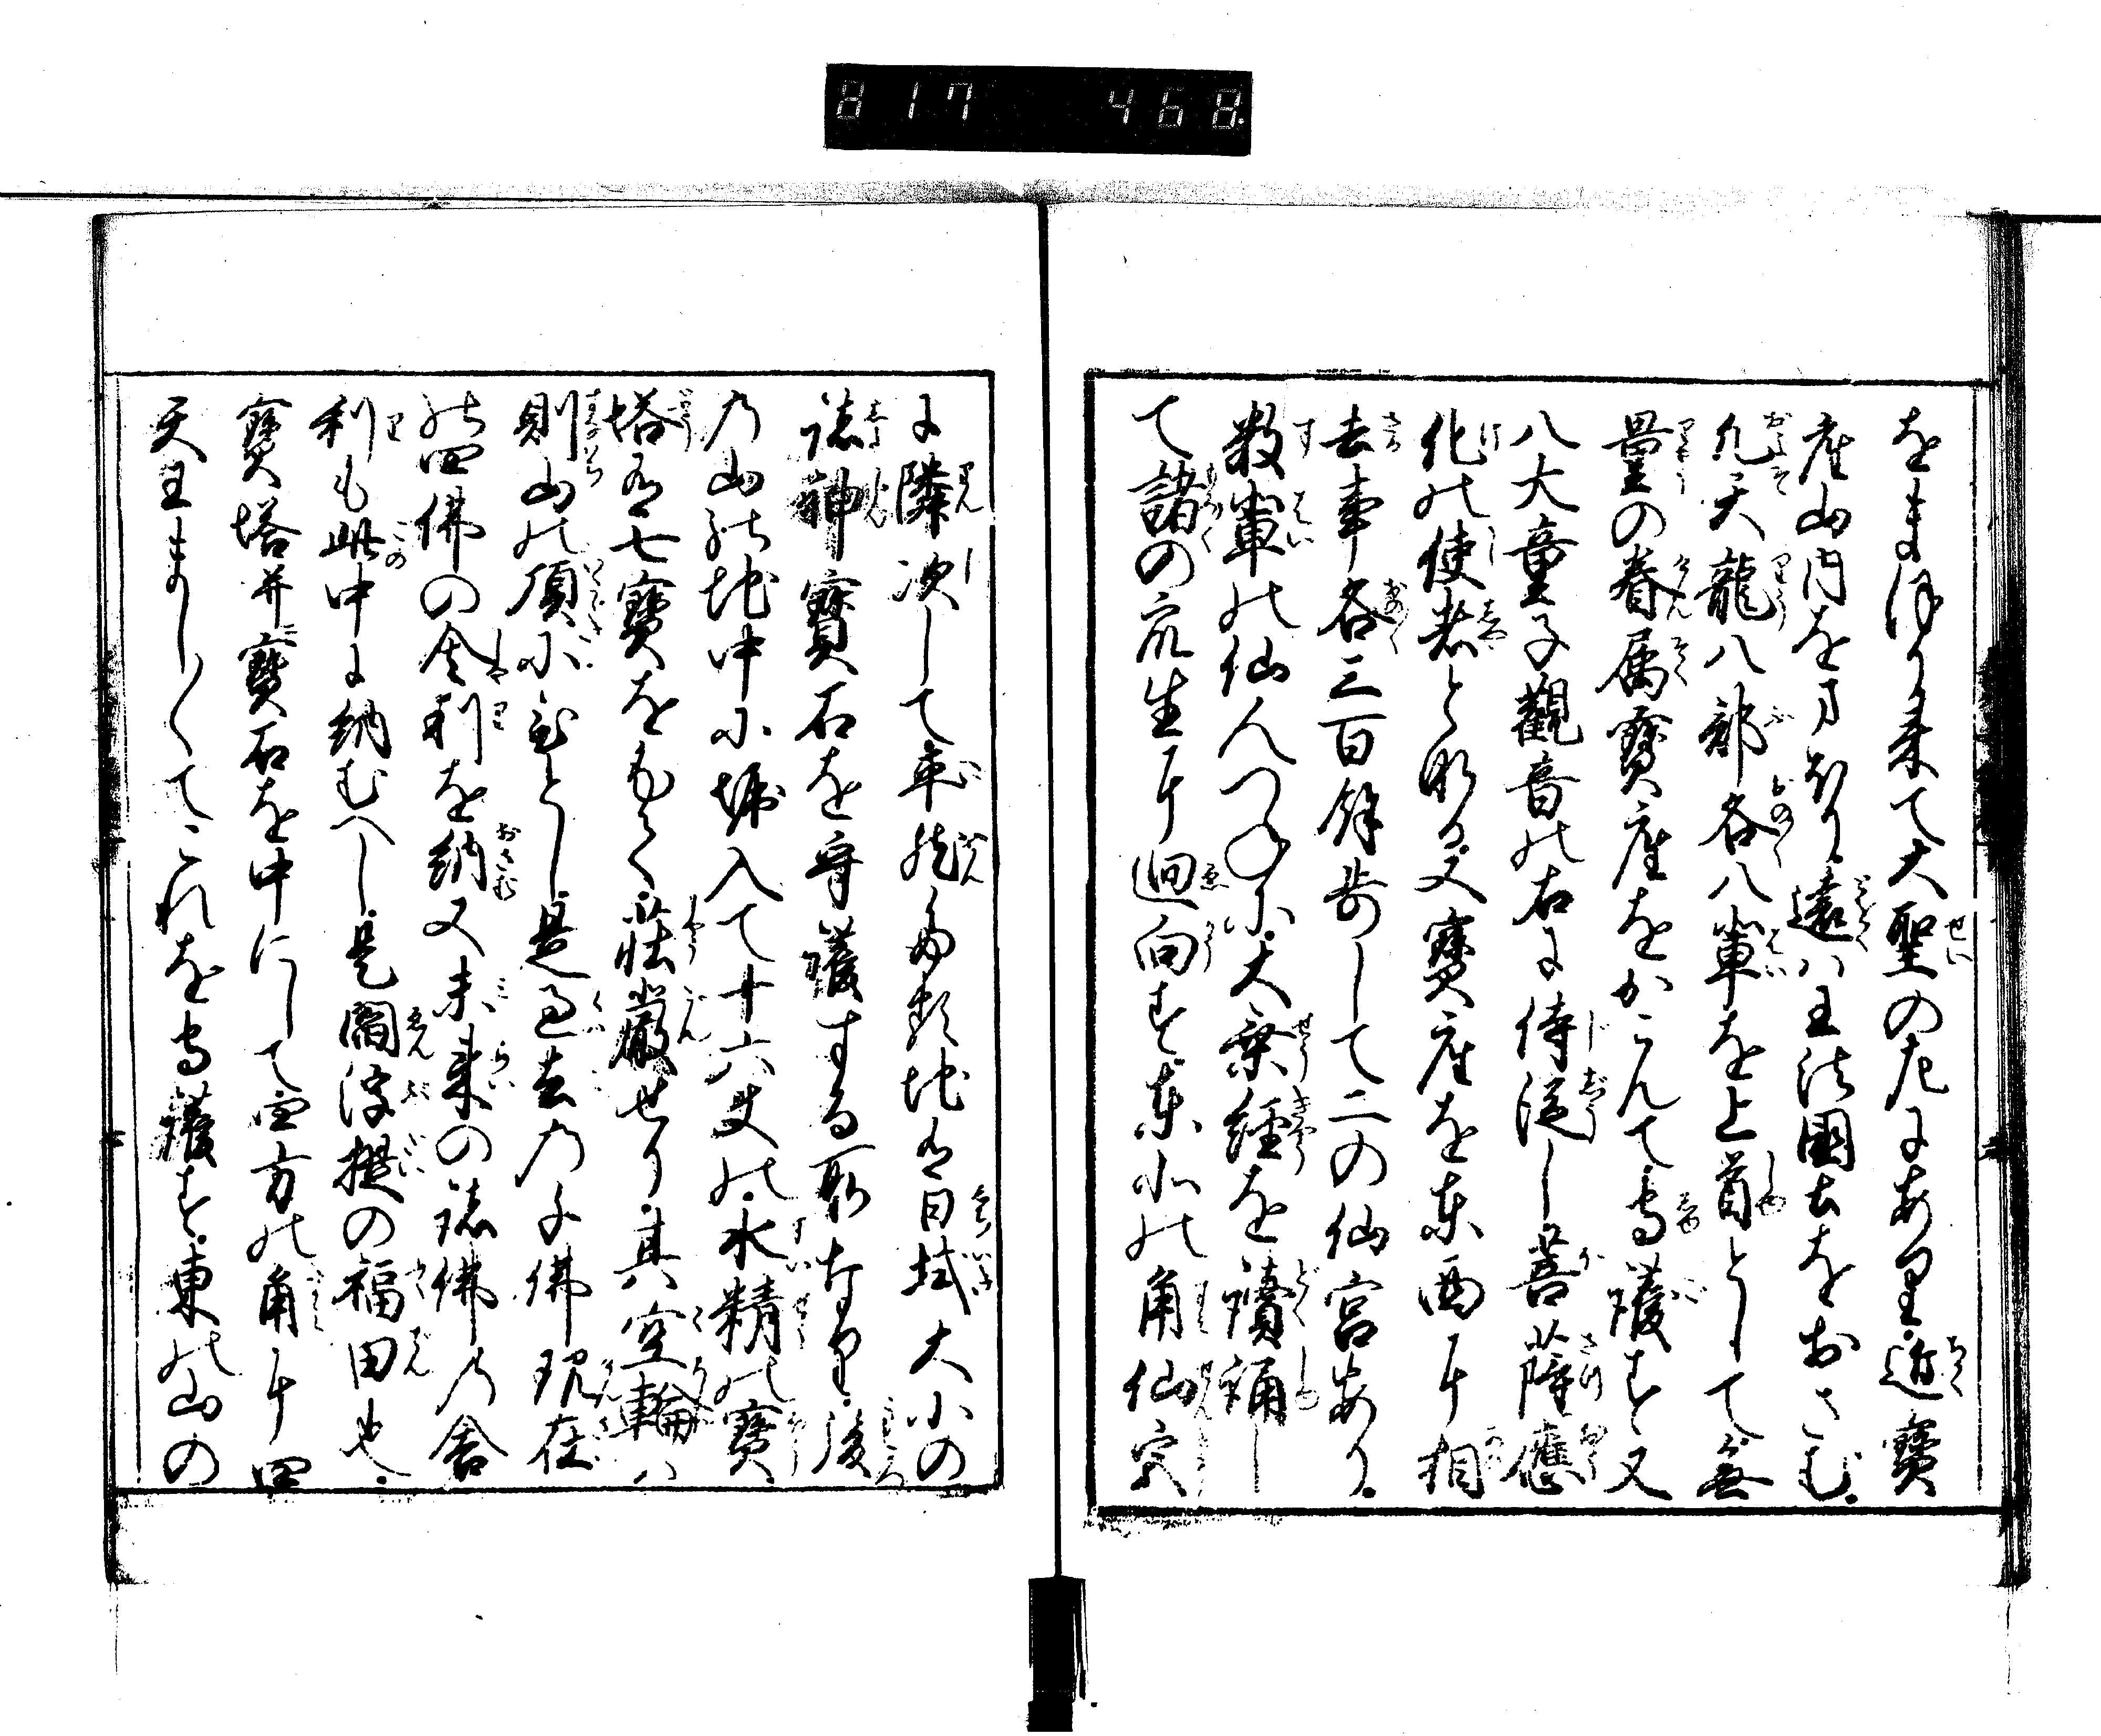 817 468
をまほり来て大聖の左にあり近寶
座山内をまもり遠ハ王法國土をおさむ
凡天龍八部各八軰を上首として無
量の眷属寶座をかこんて守護す又
八大童子觀音の右に侍従し菩薩應
化の使者となる又寶座を東西に相
去事各三百餘歩して二の仙宮あり
数軰の仙人つねに大乗經を讀誦し
て諸の衆生に迴向す東北の角仙宗
に隣次して地日域大小の
諸神寶石を守護する所なり後
の山の地中に堀入て十六丈の水精の寶
塔有七寶をもて荘嚴せり其空輪ハ
則山の頂に至とし是過去の千佛現在
の四佛の舎利を納又未来の諸佛の舎
利も此中に納むへし是閻浮提の福田也
寶塔并寶石を中にして四方の角に四
天王まし〱てこれを守護す東の山の